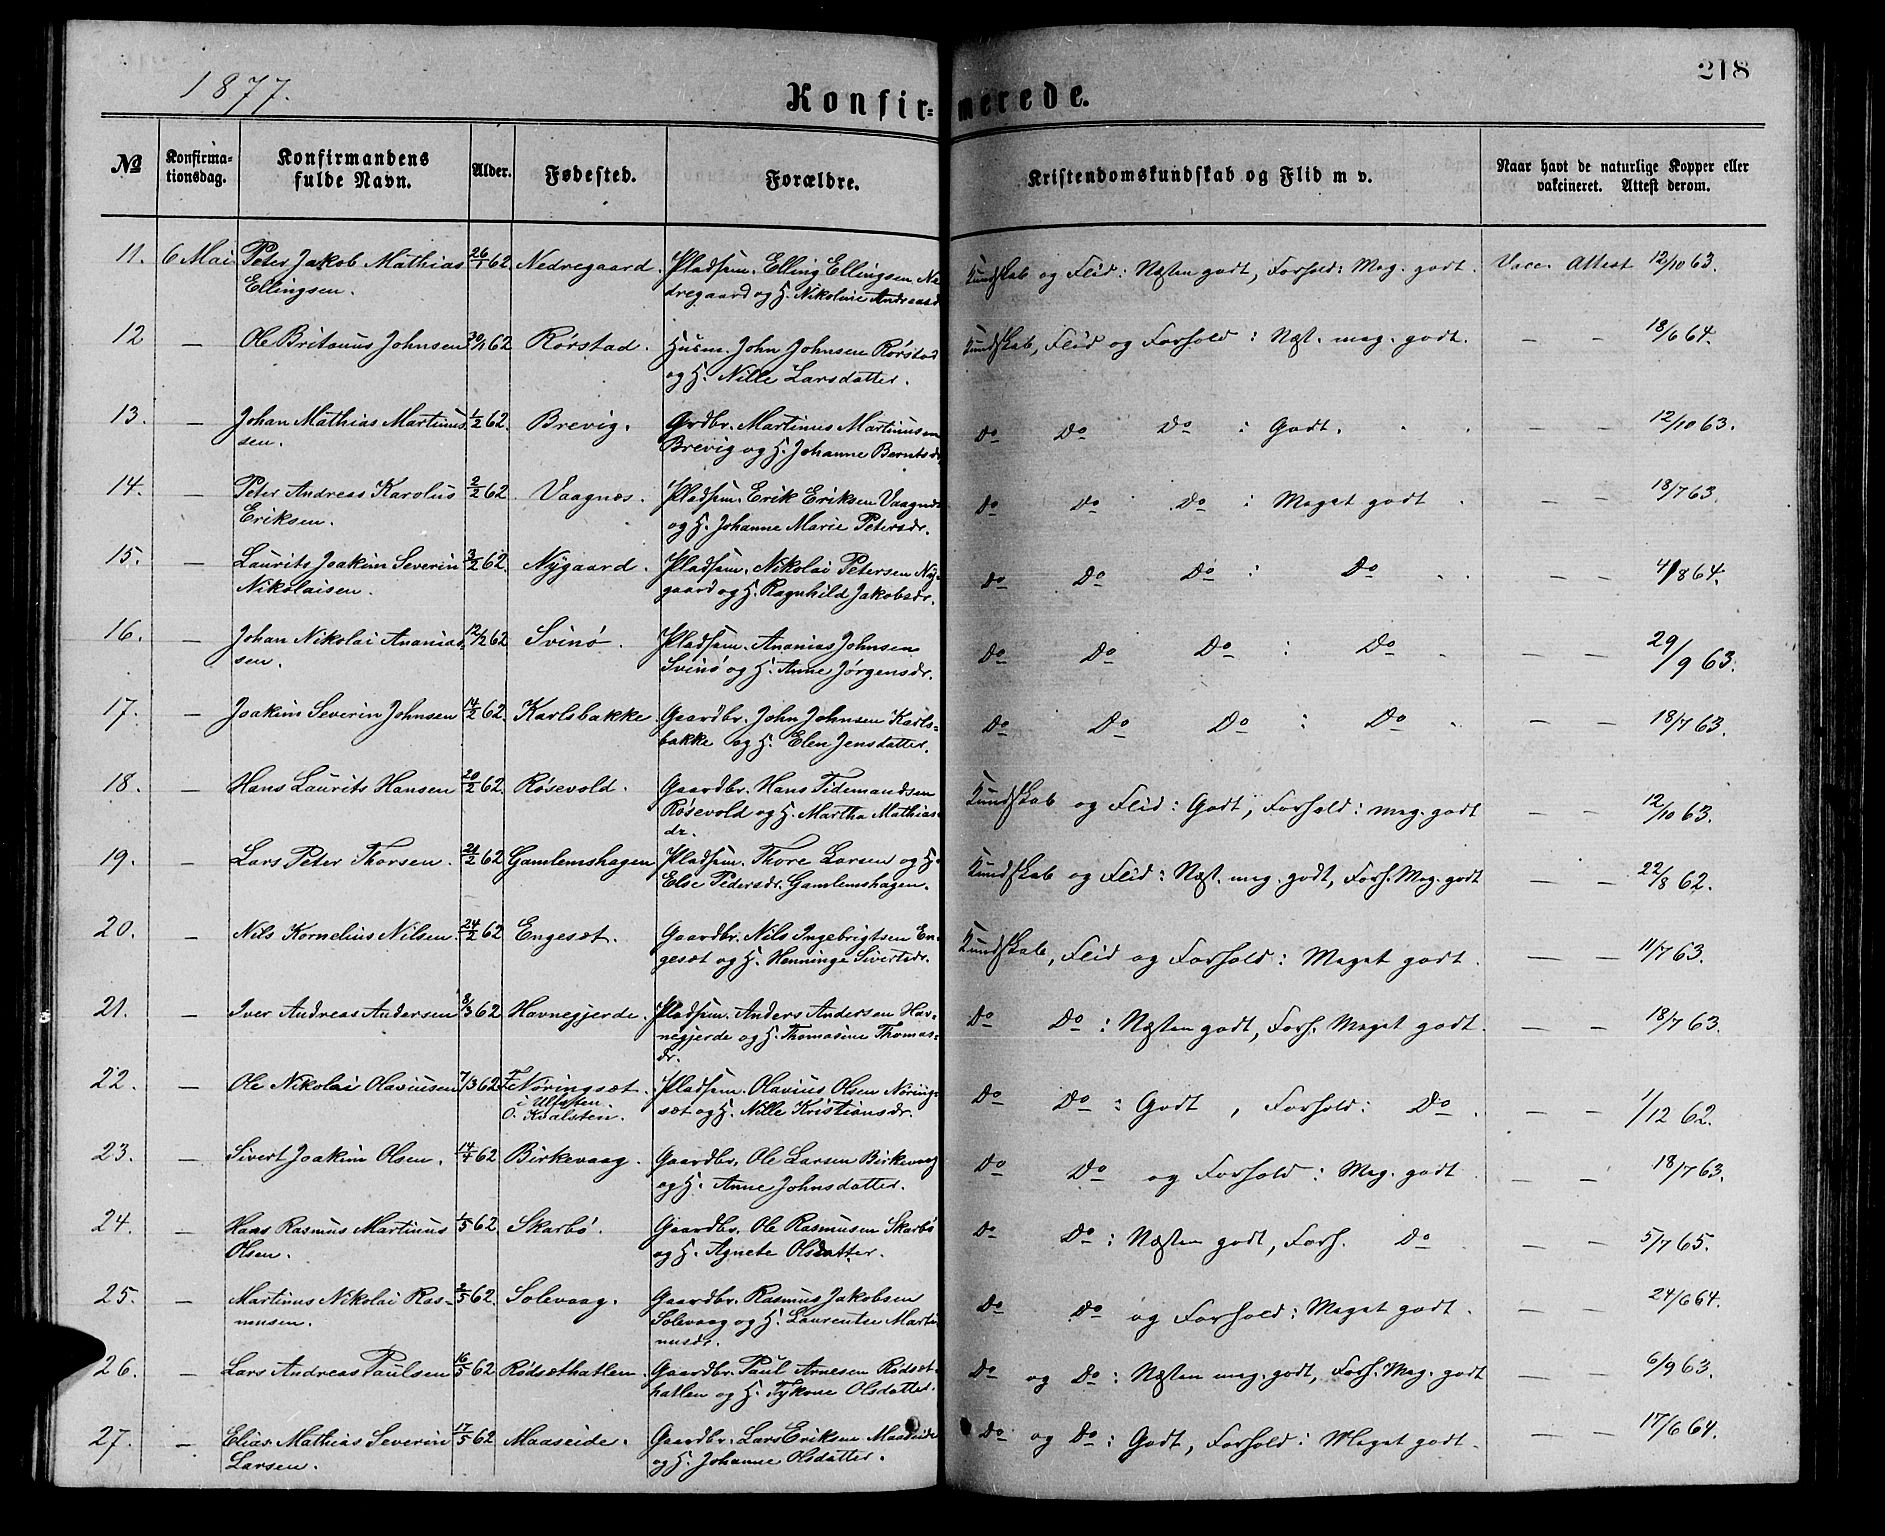 1877.
Konfirmerede.
218
№ Konfirma-tionsdag. Konfirmandens fulde Navn. Alder. Fødested. Forældre. Kristendomskundskab og Flid m v. Naar havt de naturlige Kopper eller vakcineret. Attest derom.
11. 6 Mai Peter Jakob Mathias 26/1 62 Nedregaard. Pladsm. Elling Ellingsen Ne- Kundskab og Flid: Næsten godt, Forhold: Meg. godt. Vacc. Attest 12/10 63.
Ellingsen. dregaard og H. Nikoline Andreasd
12 — Ole Britanus Johnsen 30/1 62 Rørstad. Husm. John Johnsen Rørstad Kundskab, Flid og Forhold: Næst. meg. godt. — — 18/6 64.
og H. Nille Larsdatter.
13. — Johan Mathias Martinus 1/2 62. Brevig. Grdbr. Martinus Martinusen Do Do Do : Godt. — — 12/10 63.
sen. Brevig og H. Johanne Berntsdr.
14. — Peter Andreas Karolus 2/2 62 Vaagnæs. Pladsm. Erik Eriksen Vaagnæs Do Do Do : Meget godt — — 18/7 63.
Eriksen. og H. Johanne Marie Petersdr.
15. — Laurits Joakim Severin 3/2 62. Nygaard. Pladsm. Nikolai Petersen Ny- Do Do Do : Do — — 4/8 64.
Nikolaisen. gaard og H. Ragnhild Jakobsdr.
16. — Johan Nikolai Ananias 12/2 62 Svinø. Pladsm. Ananias Johnsen Do Do Do : Do — — 29/9 63.
sen. Svinø og H. Anne Jørgensdr.
17. — Joakim Severin Johnsen 14/2 62. Karlsbakke. Gaardbr. John Johnsen Karls- Do Do Do : Do — — 18/7 63.
bakke og H. Elen Jensdatter.
18. — Hans Laurits Hansen 20/2 62. Røsevold. Gaardbr. Hans Tidemandsen Kundskab og Flid: Godt, Forhold: meg. godt — — 12/10 63.
Røsevold og H. Martha Mathias-
dr.
19. — Lars Peter Thorsen. 21/2 62 Gamlemshagen Pladsm. Thore Larsen og H. Kundskab og Flid: Næst. meg. godt, Forh. Meg. godt — — 22/8 62.
Else Pedersdr. Gamlemshagen.
20. — Nils Kornelius Nilsen. 24/2 62 Engesæt. Gaardbr. Nils Ingebrigtsen En- Kundskab, Flid og Forhold: Meget godt. — — 11/7 63.
gesæt og H. Henninge Sivertsdr.
21. — Iver Andreas Andersen 8/3 62 Havnegjerde. Pladsm. Anders Andersen Hav- Do Do : Næsten godt, Forh. Meget godt. — — 18/7 63.
negjerde og H. Thomasine Thomas-
dr.
22. — Ole Nikolai Olaviusen 7/3 62 Nøringsæt. Pladsm. Olavius Olsen Nøring- Do Do : Godt, Forhold: Do. — — 1/12 62.
i Ulfsten. sæt og H. Nille Kristiansdr.
O. Kvalstein.
23. — Sivert Joakim Olsen. 14/4 62 Birkevaag. Gaardbr. Ole Larsen Birkevaag Do Do og Forhold: Meg. godt — — 18/7 63.
og H. Anne Johnsdatter.
24. — Hans Rasmus Martinus 1/5 62. Skarbø. Gaardbr. Ole Rasmusen Skarbø Do Do : Næsten godt, Forh. Do — — 5/7 65.
Olsen. og H. Agnete Olsdatter.
25. — Martinus Nikolai Ras- 2/5 62. Solevaag. Gaardbr. Rasmus Jakobsen Do Do og Forhold: Meget godt. — — 24/6 64.
musen. Solevaag og H. Laurentse Marti
nusdr.
26. — Lars Andreas Paulsen 16/5 62 Rødsæthatlen. Gaardbr. Paul Arnesen Rødsæt- Do og Do : Næsten meg. godt, Forh. Meg. godt — — 6/9 63.
hatlen og H. Olsdatter.
27. — Elias Mathias Severin 17/5 62 Maaseide. Gaardbr. Lars Eriksen Maaseide Do og Do : Godt, Forhold: Meget godt. — — 17/6 64.
Larsen. og H. Johanne Olsdatter.